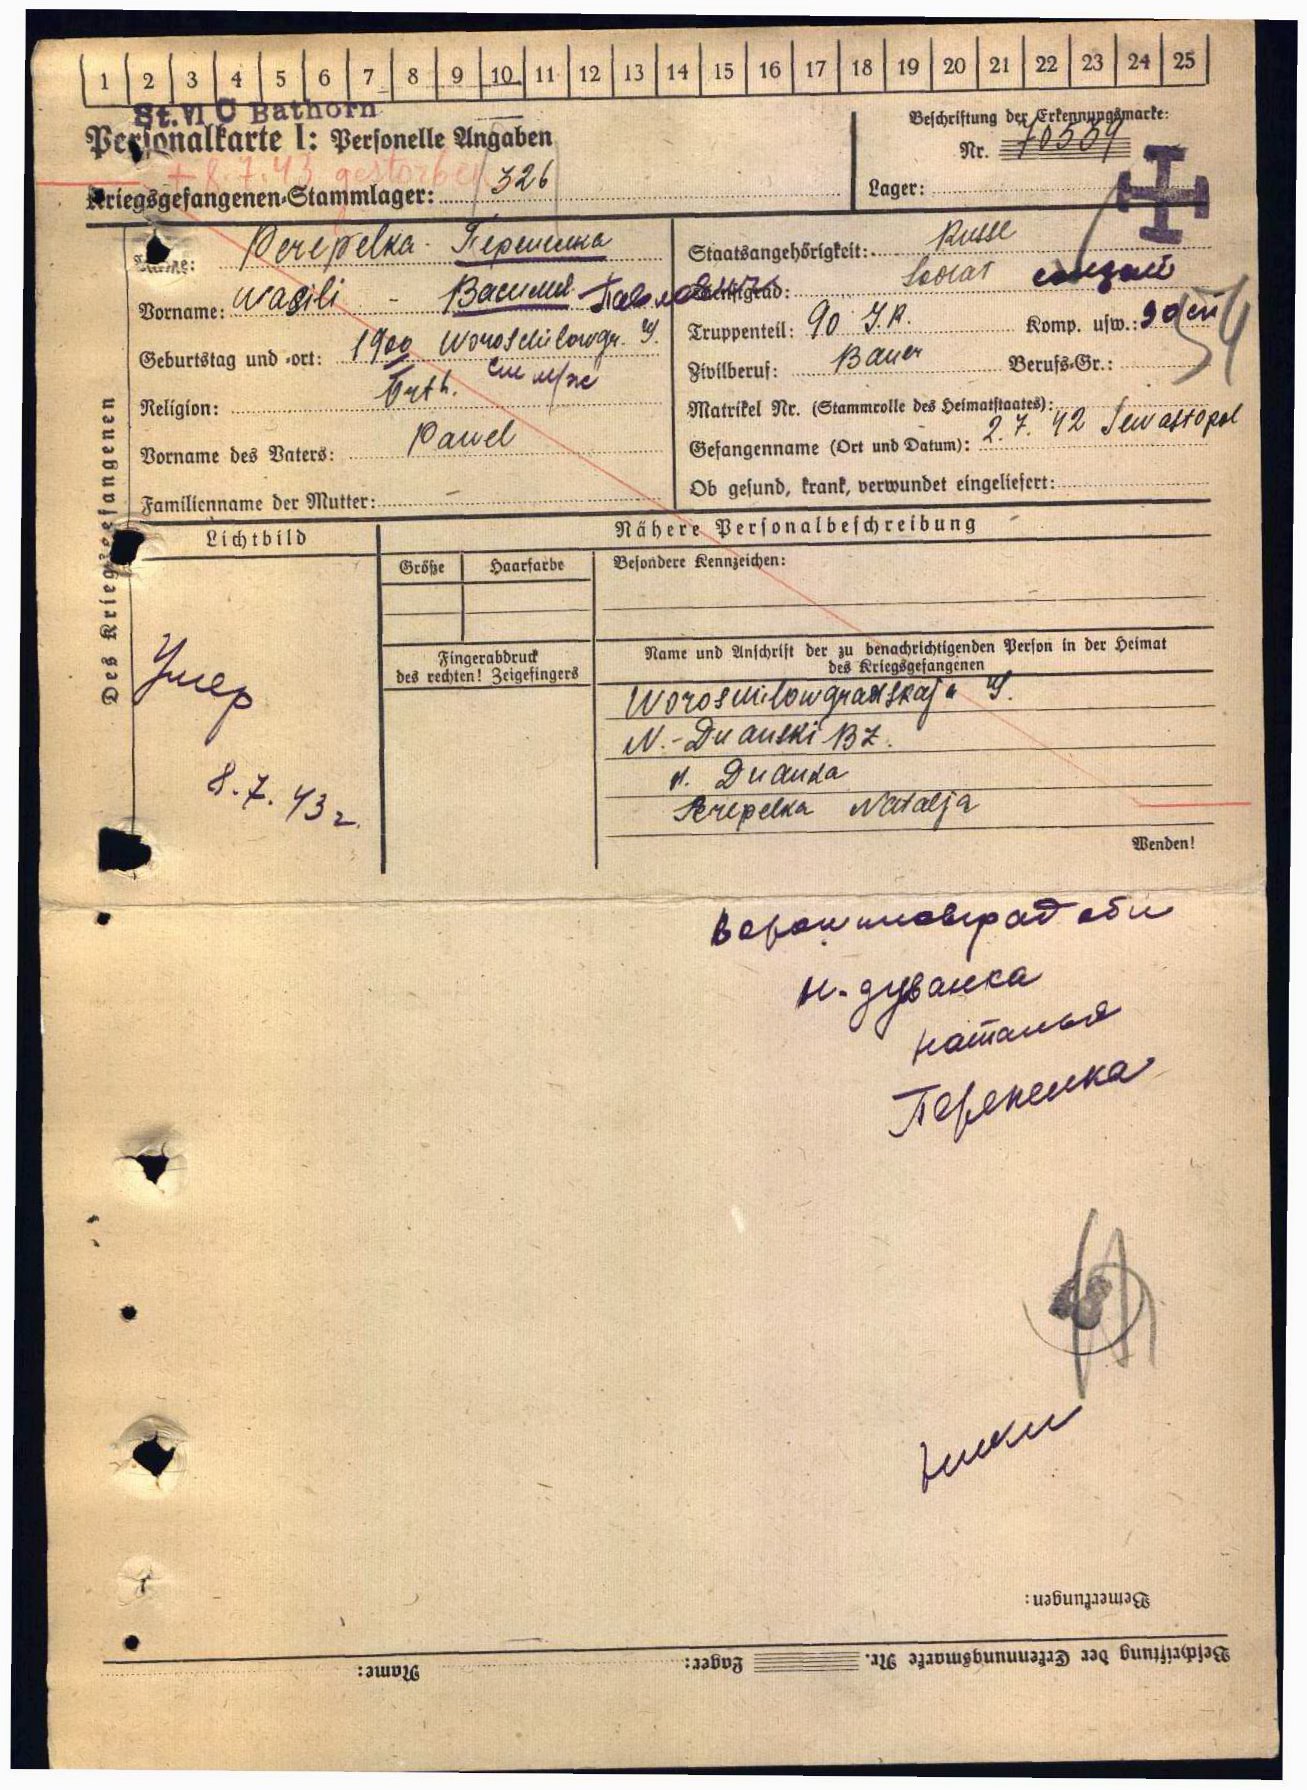 1 2 3 4 5 6 7 8 9 10 11 12 13 14 15 16 17 18 19 20 21 22 23 24 25
St. VI C Bathorn
Personalkarte I: Personelle Angaben
Beschriftung der Erkennungsmarke:
Nr. 70559
+ 8.7.43 gestorben
Kriegsgefangenen-Stammlager: 326
Lager:
Des Kriegsgefangenen
Name: Perepelka - Перепелка
Vorname: Wasili - Василий Павлович
Geburtstag und -ort: 1900 Woroschilowgr.
Religion: Orth.
Vorname des Vaters: Pawel
Familienname der Mutter: –
Staatsangehörigkeit: Russe
Dienstgrad: Soldat солдат
Truppenteil: 90 J.R. Komp. usw.: 90 сп
54
Zivilberuf: Bauer Berufs-Gr.:
Matrikel Nr. (Stammrolle des Heimatstaates):
Gefangenname (Ort und Datum): 2.7.42 Sewastopol
Ob gesund, krank, verwundet eingeliefert:
Lichtbild
Nähere Personalbeschreibung
Größe Haarfarbe Besondere Kennzeichen:
Fingerabdruck
des rechten! Zeigefingers
Name und Anschrift der zu benachrichtigenden Person in der Heimat
des Kriegsgefangenen
Woroschilowgradskaja
N.-Duanski BZ.
d. Duanka
Perepelka Natalja
Wenden!
Умер
8.7.43 г.
Ворошиловград обл
н-дуванка
наталья
Перепелка
Bemerkungen:
Beschriftung der Erkennungsmarke Nr. Lager: Name: